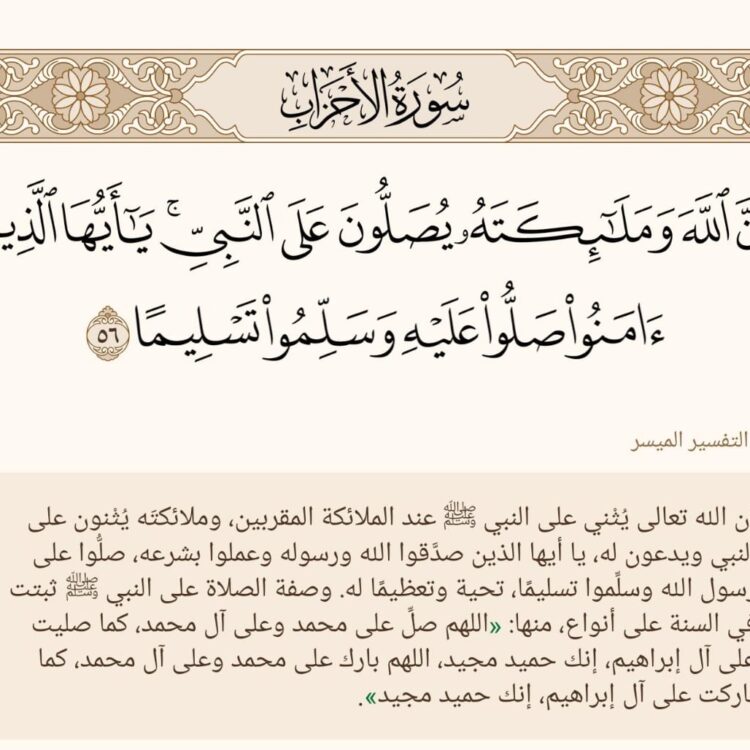 سُورَةُ الأَحْزَابِ
ٱللَّهَ وَمَلَـٰٓئِكَتَهُۥ يُصَلُّونَ عَلَى ٱلنَّبِىِّ ۚ يَـٰٓأَيُّهَا
ءَامَنُوا۟ صَلُّوا۟ عَلَيْهِ وَسَلِّمُوا۟ تَسْلِيمًا ٥٦
التفسير الميسر
الله تعالى يُثْني على النبي ﷺ عند الملائكة المقربين، وملائكتَه يُثْنون على
لنبي ويدعون له، يا أيها الذين صدَّقوا الله ورسوله وعملوا بشرعه، صلُّوا على
رسول الله وسلِّموا تسليمًا، تحية وتعظيمًا له. وصفة الصلاة على النبي ﷺ ثبتت
في السنة على أنواع، منها: «اللهم صلِّ على محمد وعلى آل محمد، كما صليت
على آل إبراهيم، إنك حميد مجيد، اللهم بارك على محمد وعلى آل محمد، كما
باركت على آل إبراهيم، إنك حميد مجيد».